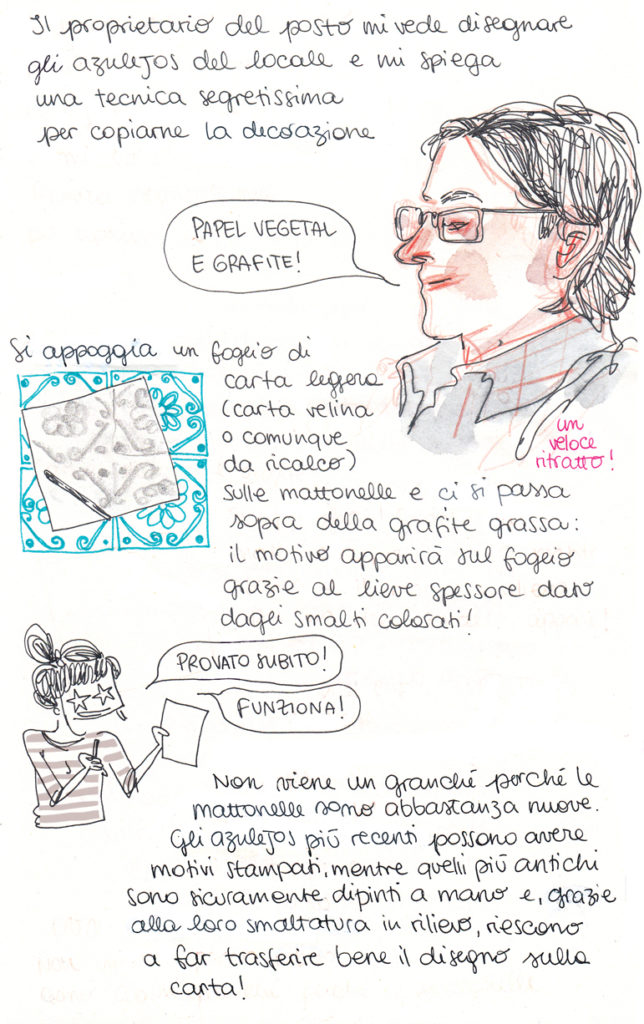 Il proprietario del posto mi vede disegnare
gli azulejos del locale e mi spiega
una tecnica segretissima
per copiarne la decorazione
PAPEL VEGETAL
E GRAFITE!
Si appoggia un foglio di
carta leggera
(carta velina
o comunque
da ricalco)
un
veloce
ritratto!
sulle mattonelle e ci si passa
sopra della grafite grassa:
il motivo apparirà sul foglio
grazie al lieve spessore dato
dagli smalti colorati!
PROVATO SUBITO!
FUNZIONA!
Non viene un granché perché le
mattonelle sono abbastanza nuove.
Gli azulejos più recenti possono avere
motivi stampati, mentre quelli più antichi
sono sicuramente dipinti a mano e, grazie
alla loro smaltatura in rilievo, riescono
a far trasferire bene il disegno sulla
carta!